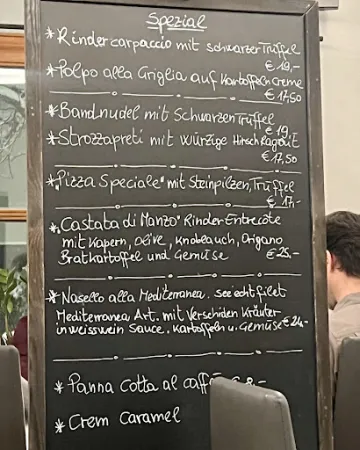 Spezial
*Rindercarpaccio mit schwarzer Trüffel
€ 19,-
*Polpo alla Griglia auf Kartoffeln Creme
€ 17,50
*Bandnudel mit Schwarzen Trüffel
€ 19,-
*Strozzapreti mit würzige Hirsch Ragout
€ 17,50
*"Pizza Speciale" mit Steinpilzen, Trüffel
€ 17,-
*"Castata di Manzo" Rinder Entrecôte
mit Kapern, Olive, Knoblauch, Origano
Bratkartoffel und Gemüse €25,-
*Nasello alla Mediterranea. Seehechtfilet
Mediterranea Art. mit Verschiden Kräuter
in weisswein Sauce, Kartoffeln u. Gemüse €24,-
*Panna Cotta al caffè
*Crem Caramel